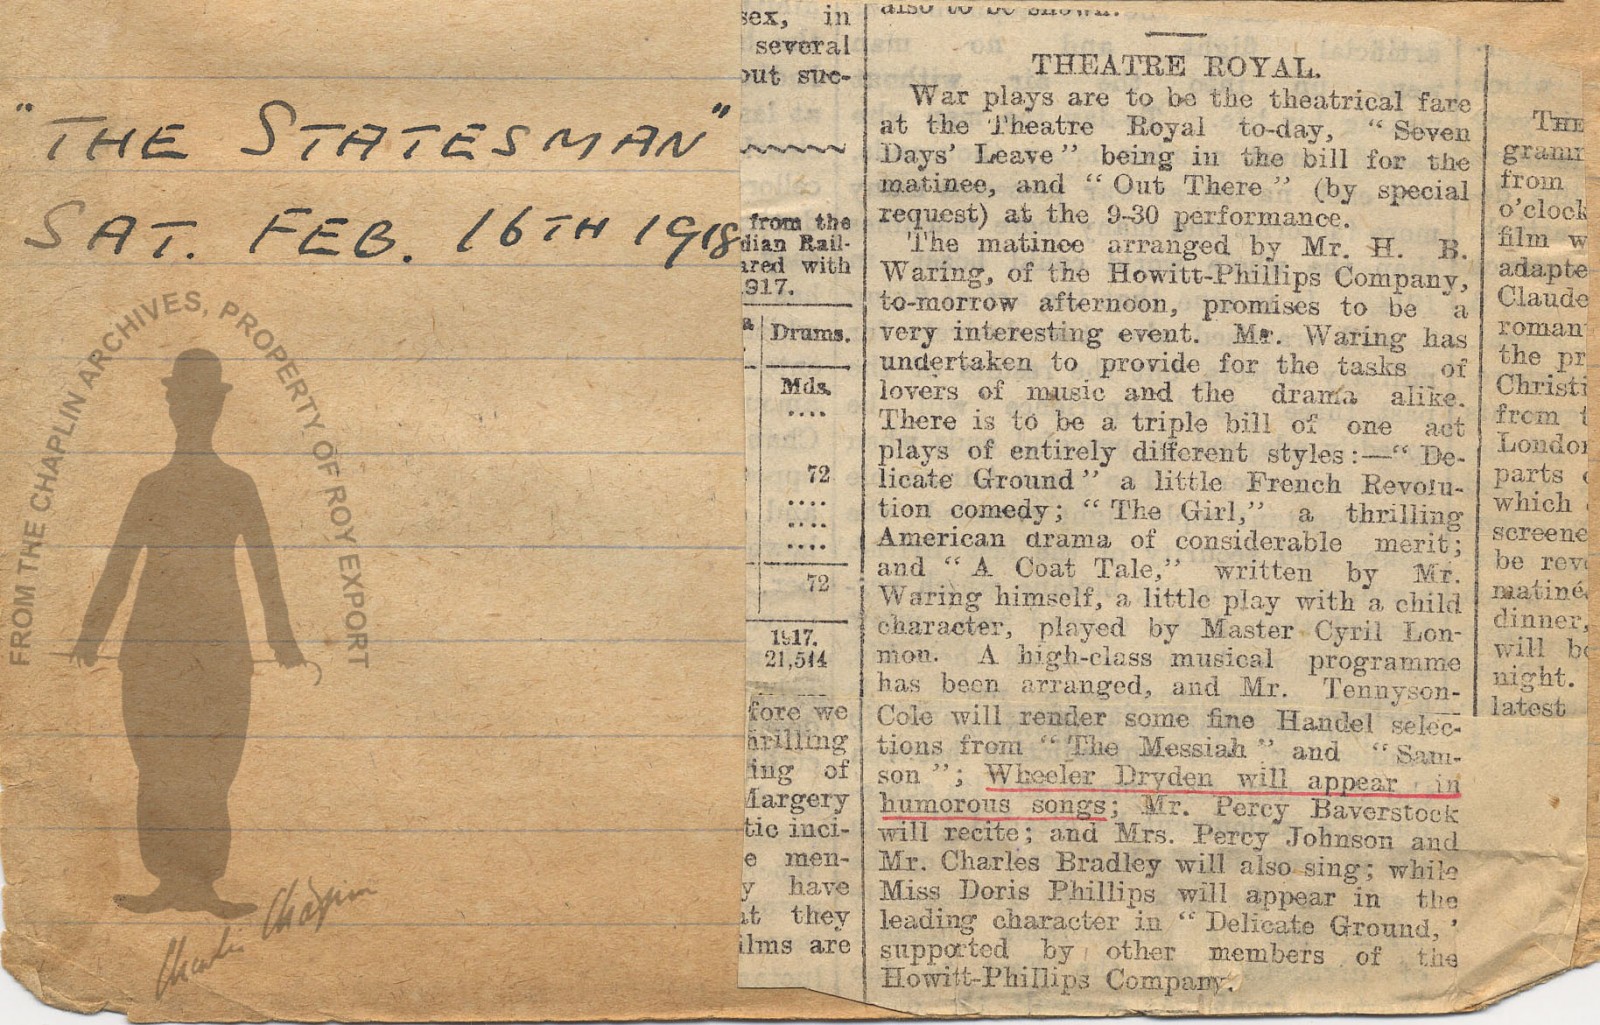 "THE STATESMAN"
SAT. FEB. 16TH 1918
FROM THE CHAPLIN ARCHIVES, PROPERTY OF ROY EXPORT
Charlie Chaplin
sex, in
several
out suc-
from the
dian Rail-
ared with
1917.
Drums.
Mds.
....
72
....
....
....
72
1917.
21,544
fore we
hrilling
ing of
Margery
tic inci-
e men-
y have
at they
ilms are
also to be shown.
THEATRE ROYAL.
War plays are to be the theatrical fare
at the Theatre Royal to-day, "Seven
Days' Leave" being in the bill for the
matinee, and "Out There" (by special
request) at the 9-30 performance.
The matinee arranged by Mr. H. B.
Waring, of the Howitt-Phillips Company,
to-morrow afternoon, promises to be a
very interesting event. Mr. Waring has
undertaken to provide for the tasks of
lovers of music and the drama alike.
There is to be a triple bill of one act
plays of entirely different styles:—"De-
licate Ground" a little French Revolu-
tion comedy; "The Girl," a thrilling
American drama of considerable merit;
and "A Coat Tale," written by Mr.
Waring himself, a little play with a child
character, played by Master Cyril Lon-
mon. A high-class musical programme
has been arranged, and Mr. Tennyson-
Cole will render some fine Handel selec-
tions from "The Messiah" and "Sam-
son"; Wheeler Dryden will appear in
humorous songs; Mr. Percy Baverstock
will recite; and Mrs. Percy Johnson and
Mr. Charles Bradley will also sing; while
Miss Doris Phillips will appear in the
leading character in "Delicate Ground,'
supported by other members of the
Howitt-Phillips Company.
THE
gramm
from
o'clock
film w
adapte
Claude
roman
the pr
Christi
from t
London
parts
which
screene
be rev
matiné
dinner,
will be
night.
latest